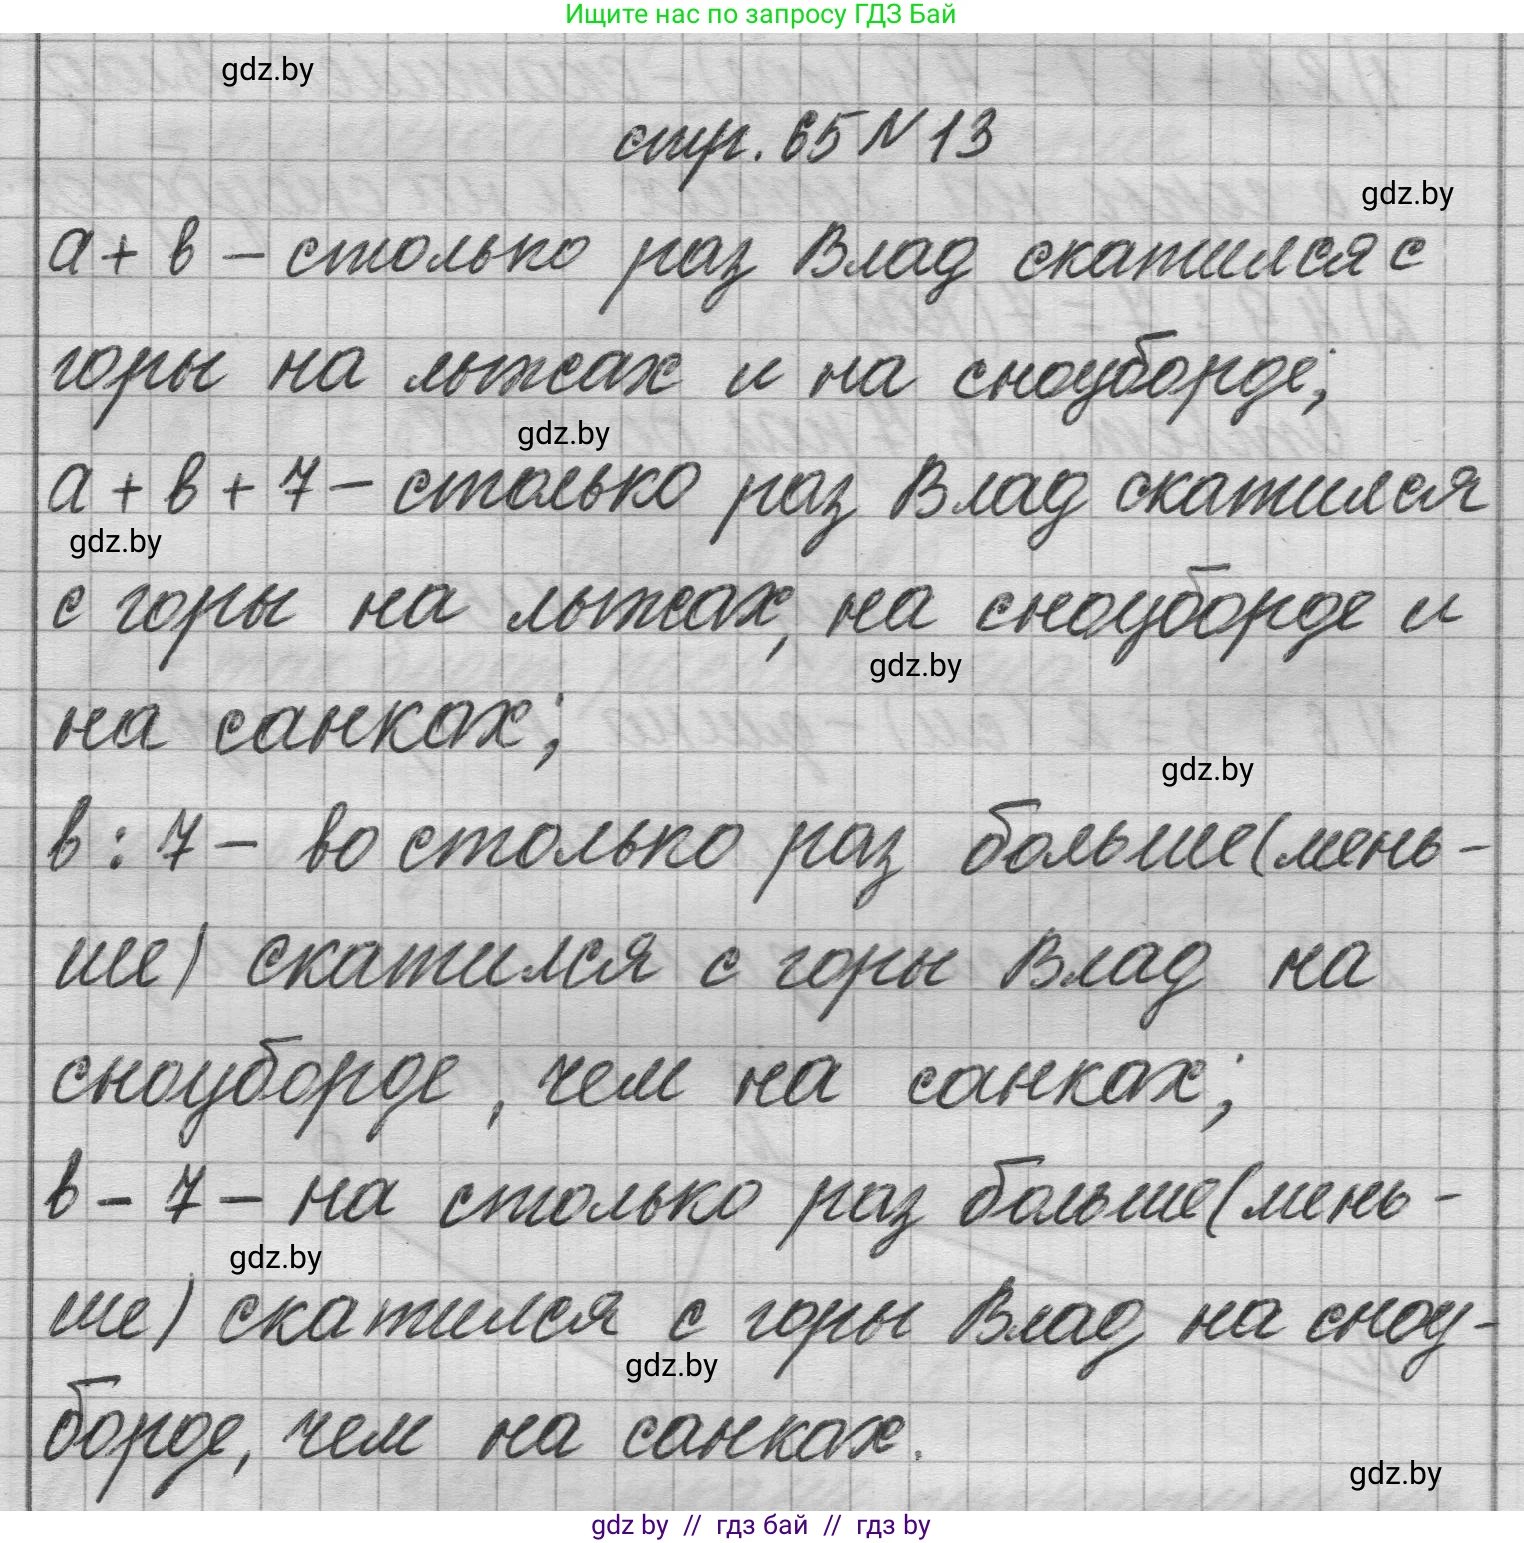 Ищите нас по запросу ГДЗ Бай
gdz.by
стр. 65 N 13
gdz.by
а + в – столько раз Влад скатился с
горы на лыжах и на сноуборде;
gdz.by
а + в + 7 – столько раз Влад скатился
gdz.by
с горы на лыжах, на сноуборде и
gdz.by
на санках;
gdz.by
в : 7 – во столько раз больше (мень-
ше) скатился с горы Влад на
сноуборде, чем на санках;
в – 7 – на столько раз больше (мень-
gdz.by
ше) скатился с горы Влад на сноу-
gdz.by
борде, чем на санках.
gdz.by
gdz by // гдз бай // гдз by